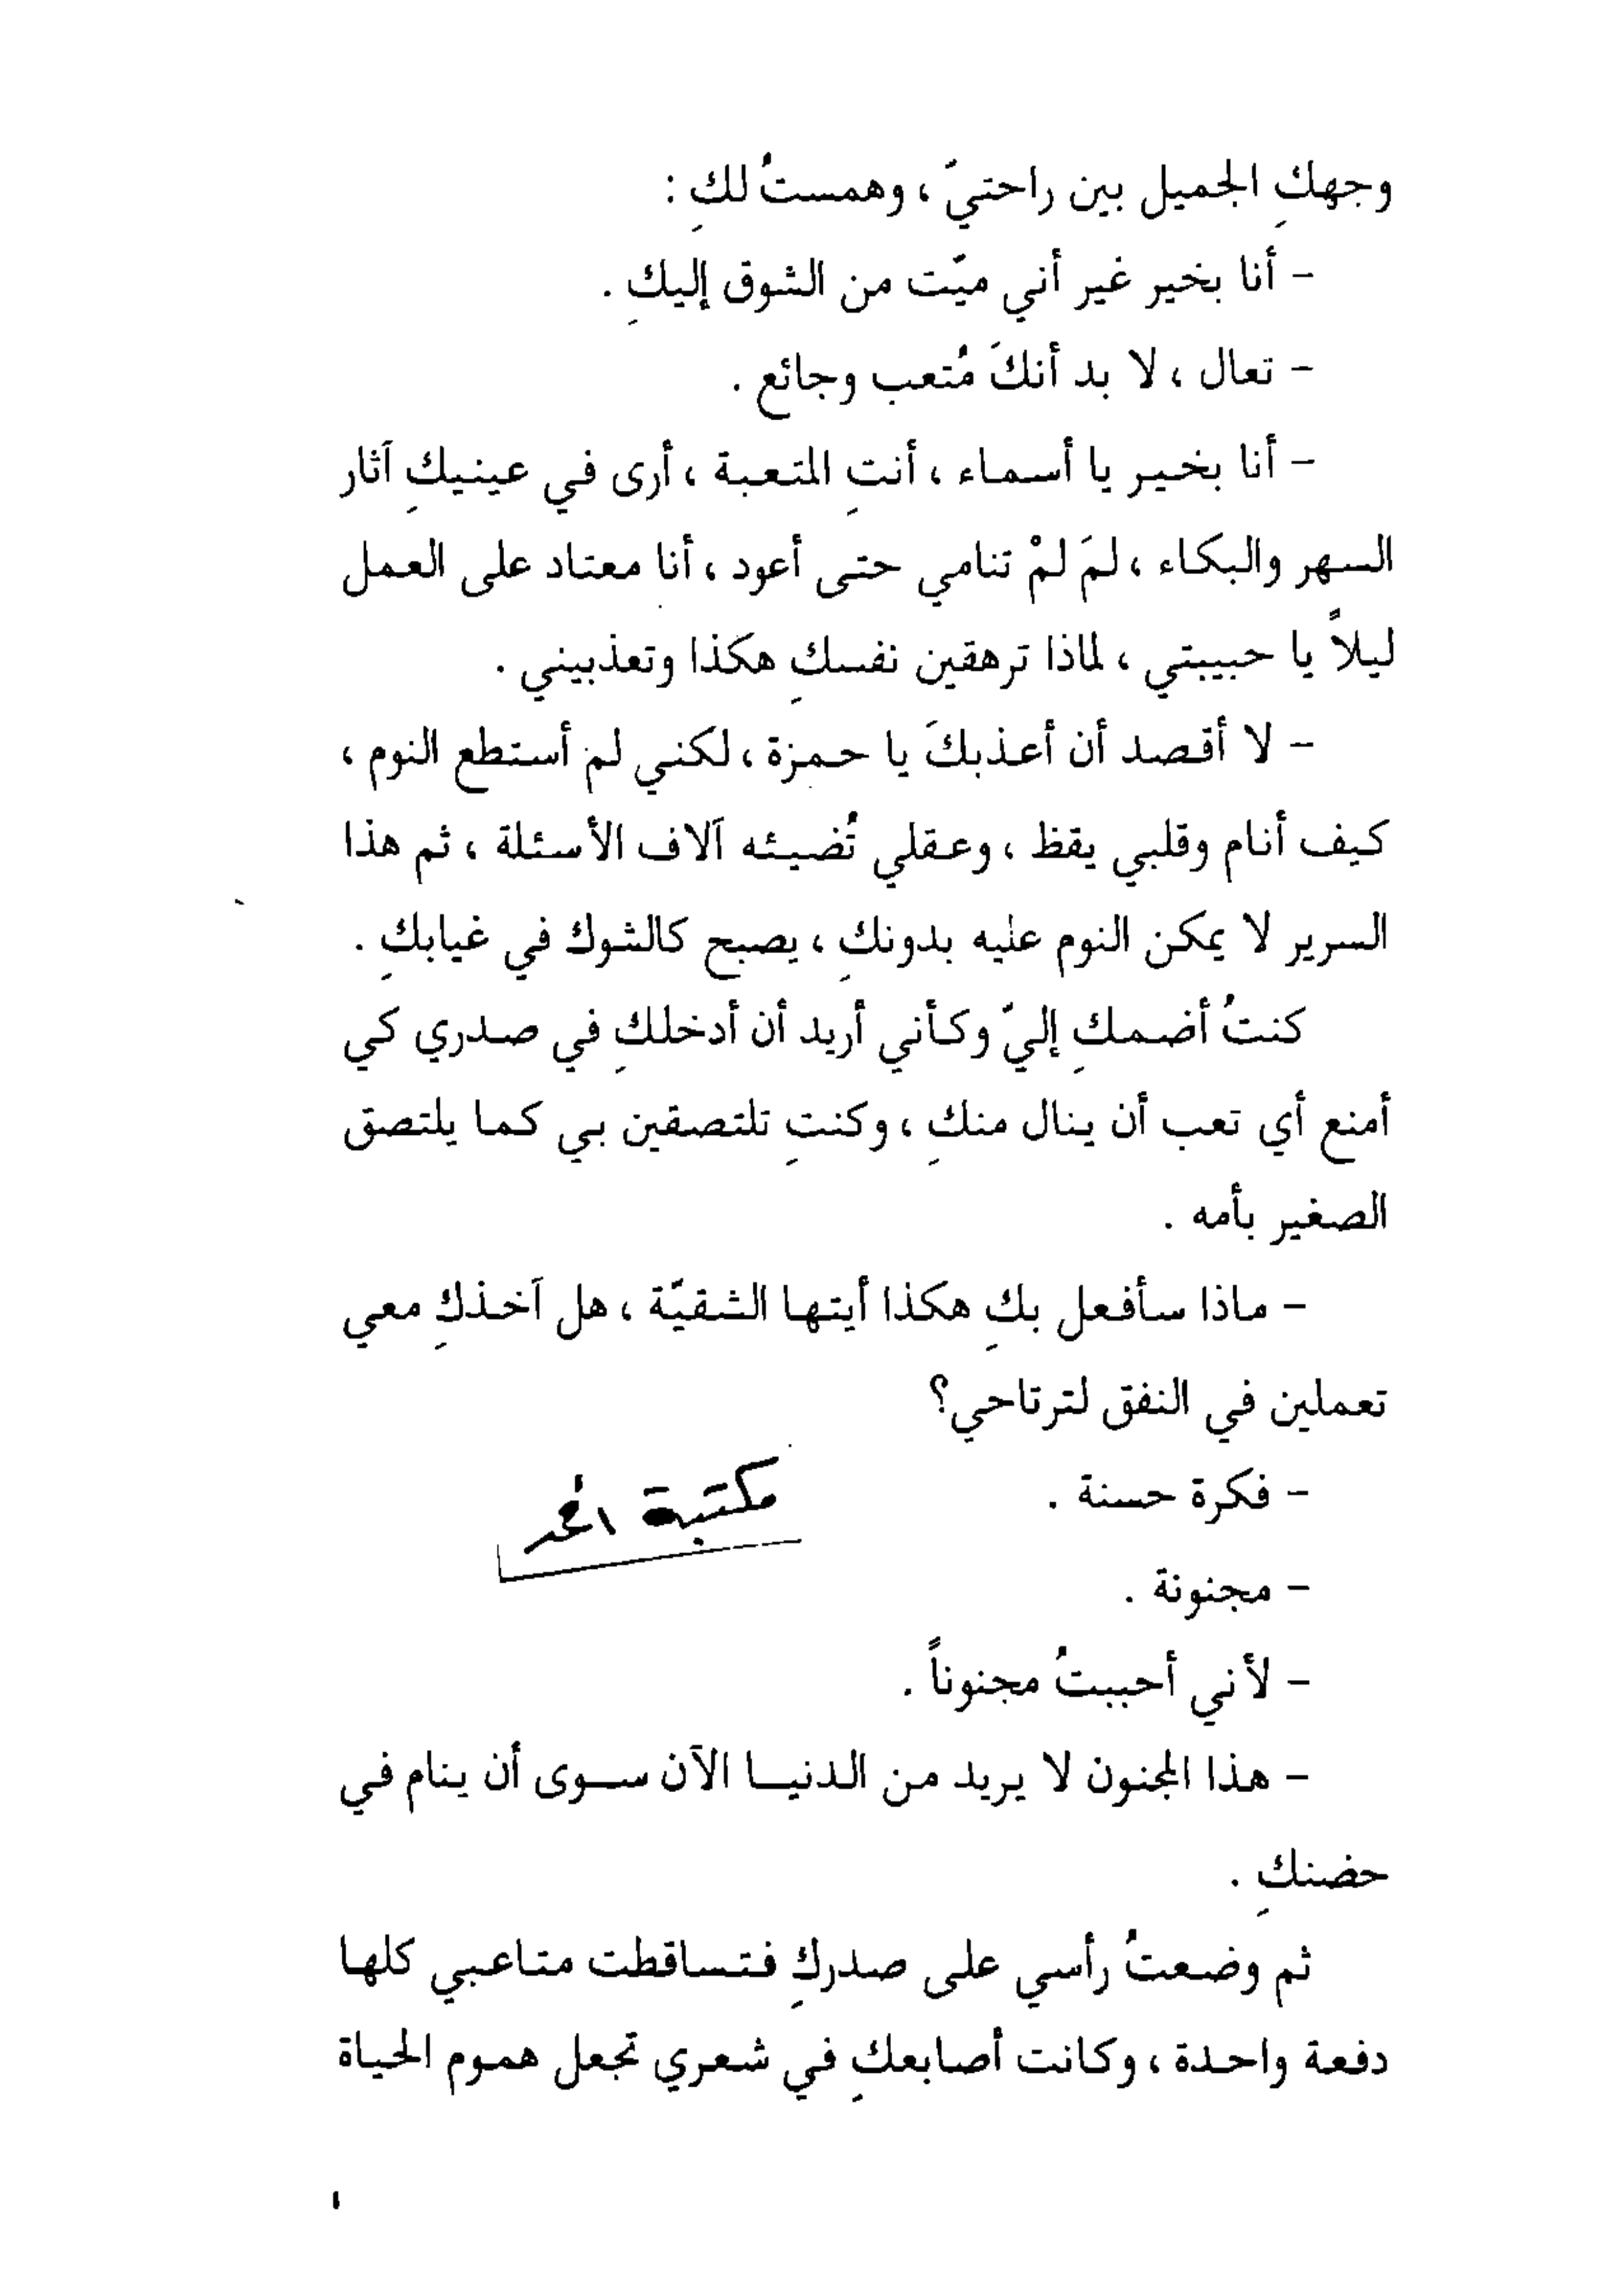 وجهكِ الجميل بين راحتيّ ، وهمستُ لكِ :
- أنا بخير غير أني ميّت من الشوق إليكِ .
- تعال ، لا بد أنكَ مُتعب وجائع .
- أنا بخير يا أسماء ، أنتِ المتعبة ، أرى في عينيكِ آثار
السهر والبكاء ، لمَ لمْ تنامي حتى أعود ، أنا معتاد على العمل
ليلاً يا حبيبتي ، لماذا ترهقين نفسكِ هكذا وتعذبيني .
- لا أقصد أن أعذبكَ يا حمزة ، لكني لم أستطع النوم ،
كيف أنام وقلبي يقظ ، وعقلي تُضيئه آلاف الأسئلة ، ثم هذا
السرير لا يمكن النوم عليه بدونكِ ، يصبح كالشوك في غيابكِ .
كنتُ أضمكِ إليّ وكأني أريد أن أدخلكِ في صدري كي
أمنع أي تعب أن ينال منكِ ، وكنتِ تلتصقين بي كما يلتصق
الصغير بأمه .
- ماذا سأفعل بكِ هكذا أيتها الشقيّة ، هل آخذكِ معي
تعملين في النفق لترتاحي؟
- فكرة حسنة .
مكتبة
- مجنونة .
- لأني أحببتُ مجنوناً .
- هذا المجنون لا يريد من الدنيا الآن سوى أن ينام في
حضنكِ .
ثم وضعتُ رأسي على صدركِ فتساقطت متاعبي كلها
دفعة واحدة ، وكانت أصابعكِ في شعري تجعل هموم الحياة